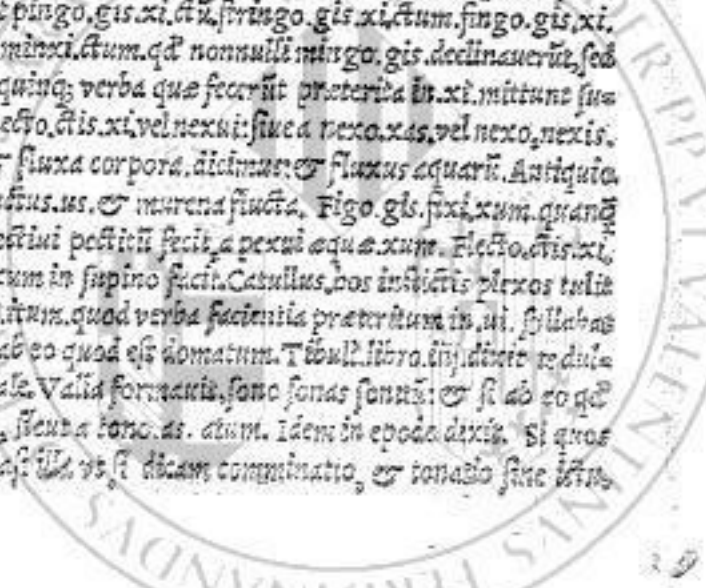 pingo.gis.xi.ctū.stringo.gis.xi.ctum.fingo.gis.xi.
minxi.ctum.qd' nonnulli mingo.gis.declinauerūt, sed
quinq; verba quæ fecerūt præterita in.xi.mittunt su=
ecto.ctis.xi.vel nexui: siue a nexo.xas.vel nexo.nexis.
fluxa corpora.dicimus: & fluxus aquarū. Antiquio.
us.& murena fluctа. Figo.gis.fixi.xum.quanq̄
pectitū fecit, a pexui æquæ.xum. Flecto.ctis.xi.
xum in supino facit. Catullus, vos instictis plexos tulit
itum.quod verba facientia præteritum in.ui. syllabas
ab eo quod est domatum. Tibull.libro.iiij.dixit te dul=
ale. Valla formauit.sono sonas sonitū: & si ab eo qd'
sicut a tono.as.atum. Idem in epodo dixit. Si quos
illa vt si dicam comminatio, & tonatio sine ictu,